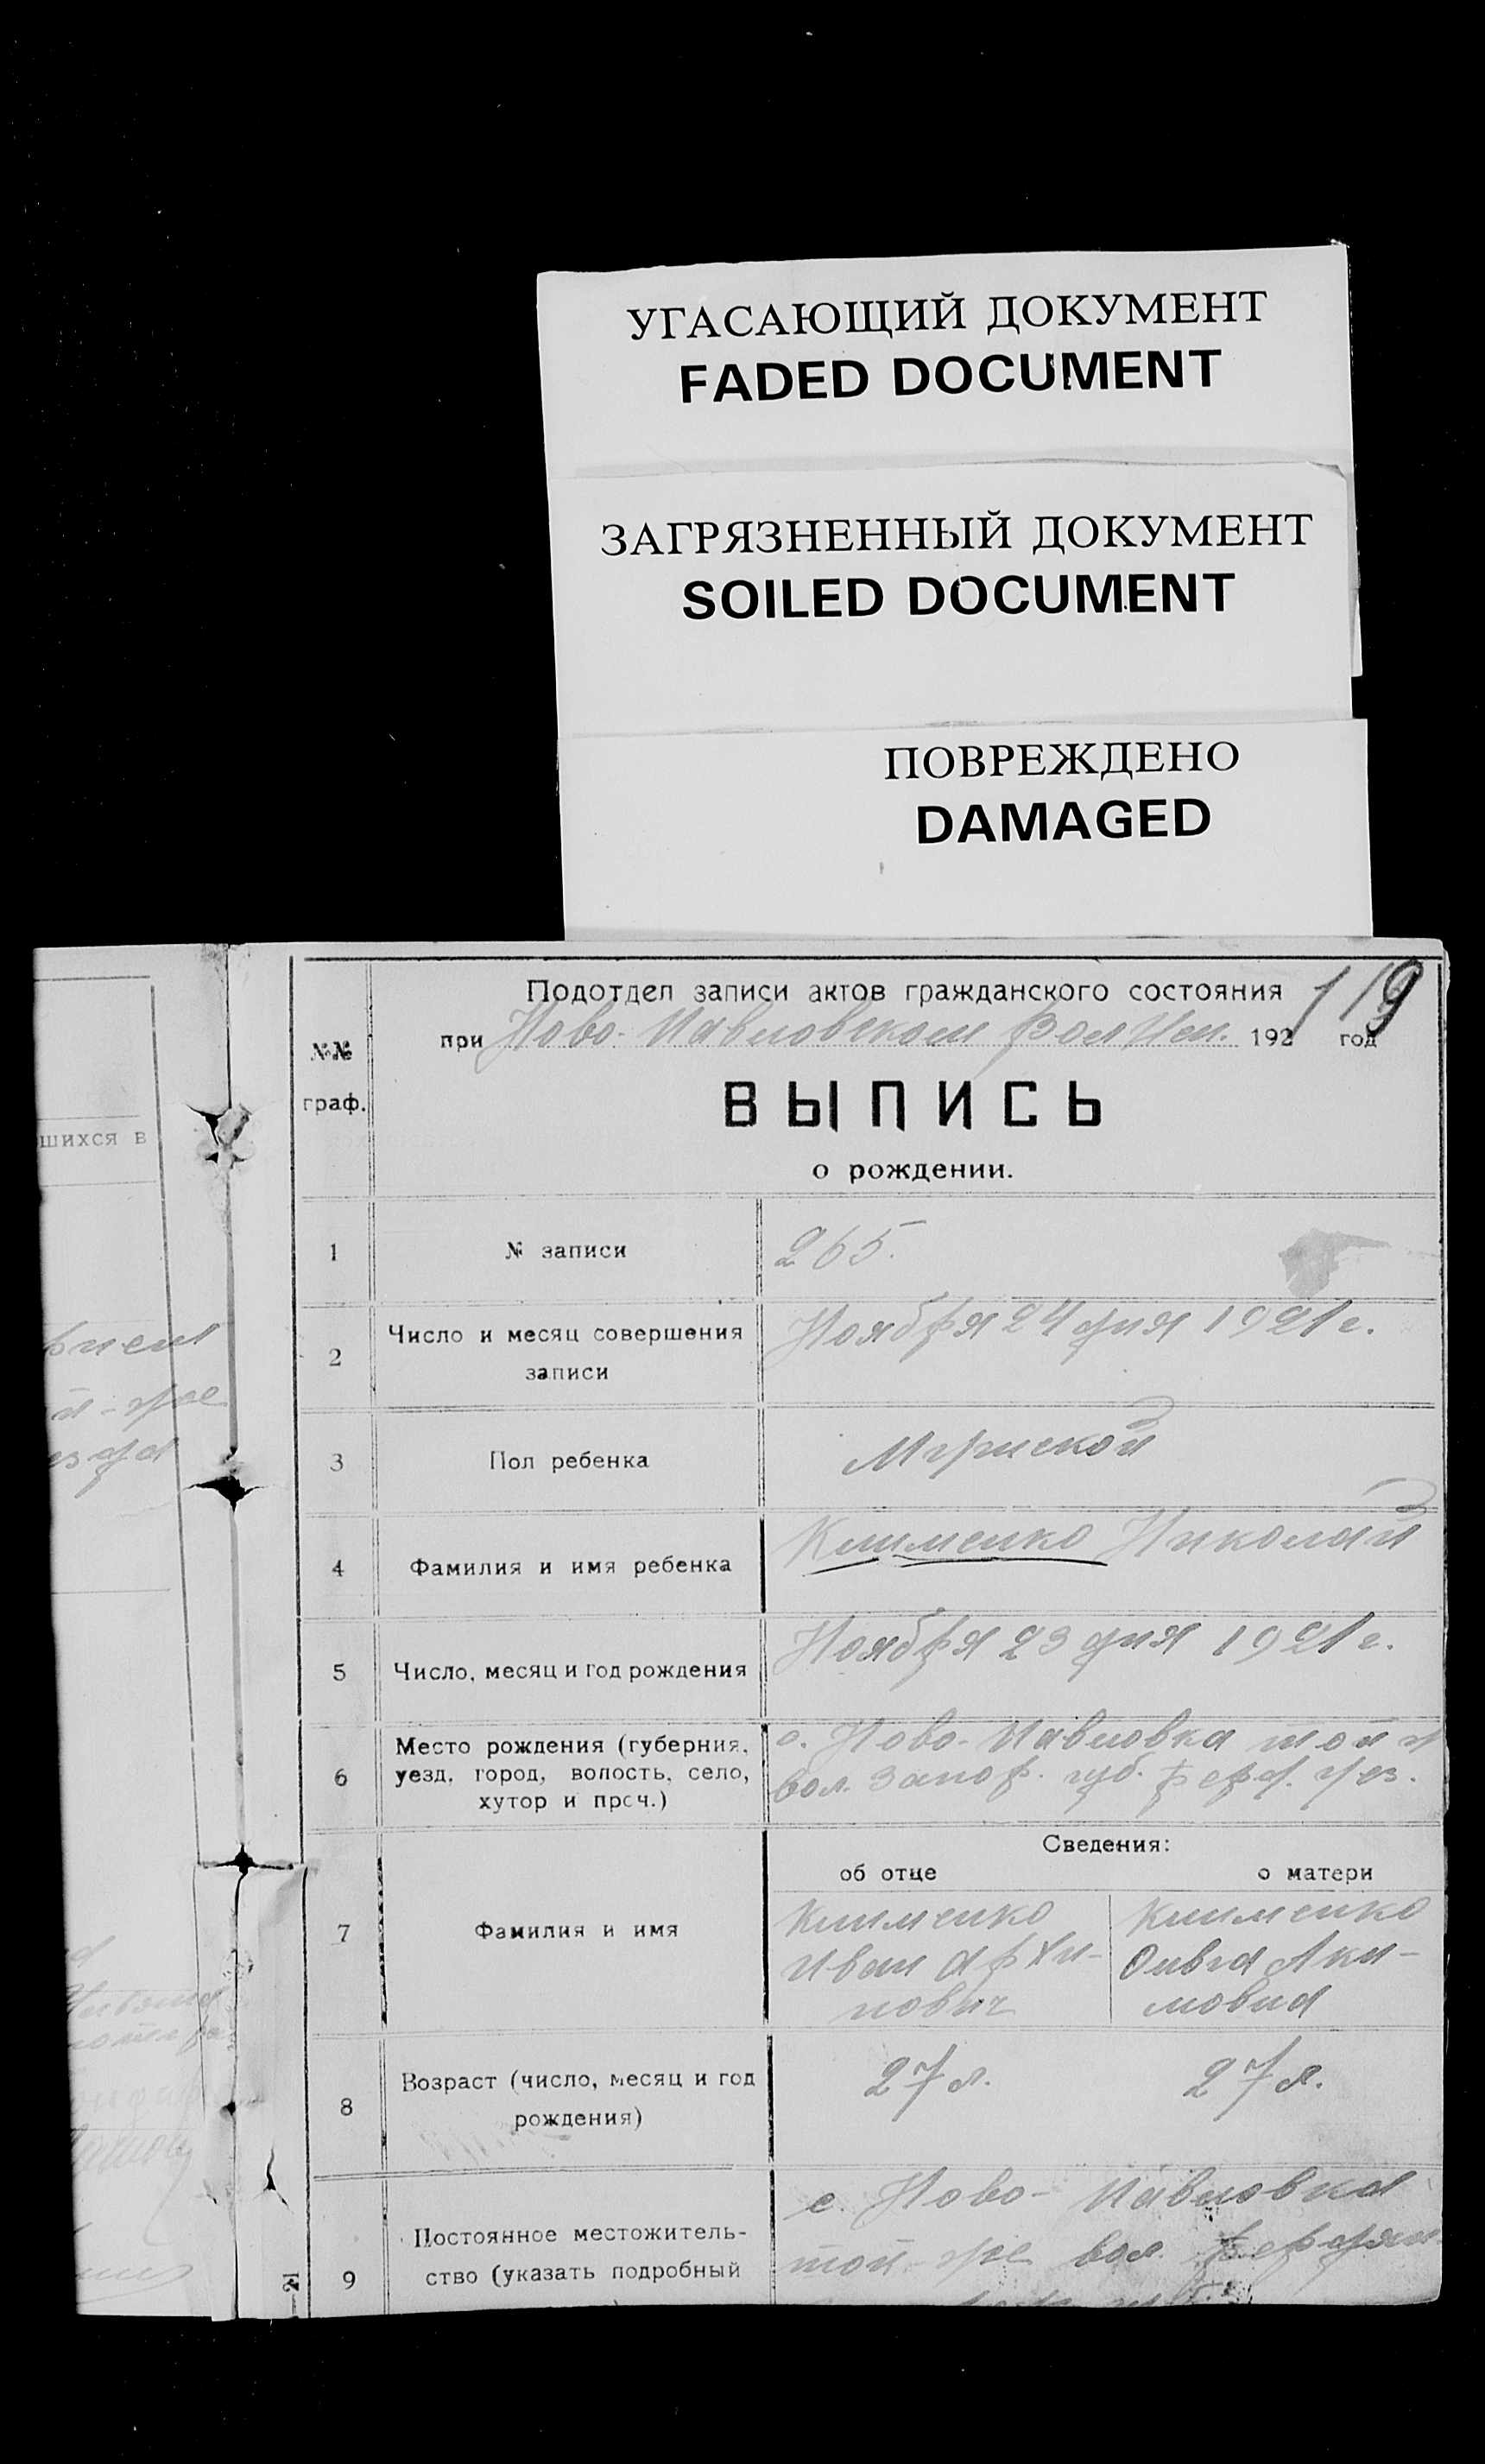 УГАСАЮЩИЙ ДОКУМЕНТ
FADED DOCUMENT
ЗАГРЯЗНЕННЫЙ ДОКУМЕНТ
SOILED DOCUMENT
ПОВРЕЖДЕНО
DAMAGED
шихся в
119
№№ граф.
Подотдел записи актов гражданского состояния
при Ново-Павловском 1921 год
ВЫПИСЬ
о рождении.
1 № записи 265.
2 Число и месяц совершения
записи
Ноября 24 дня 1921 г.
3 Пол ребенка Мужской
4 Фамилия и имя ребенка Клименко Николай
5 Число, месяц и год рождения Ноября 23 дня 1921 г.
6 Место рождения (губерния,
уезд, город, волость, село,
хутор и проч.)
с. Ново-Павловка той ж
вол. Запор. губ. Берд. уез.
Сведения:
об отце о матери
7 Фамилия и имя
Клименко Клименко
Иван Архи- Ольга Аки-
пович мовна
8 Возраст (число, месяц и год
рождения)
27 л. 27 л.
9 Постоянное местожитель-
ство (указать подробный
с. Ново-Павловка
той-же вол. Бердян